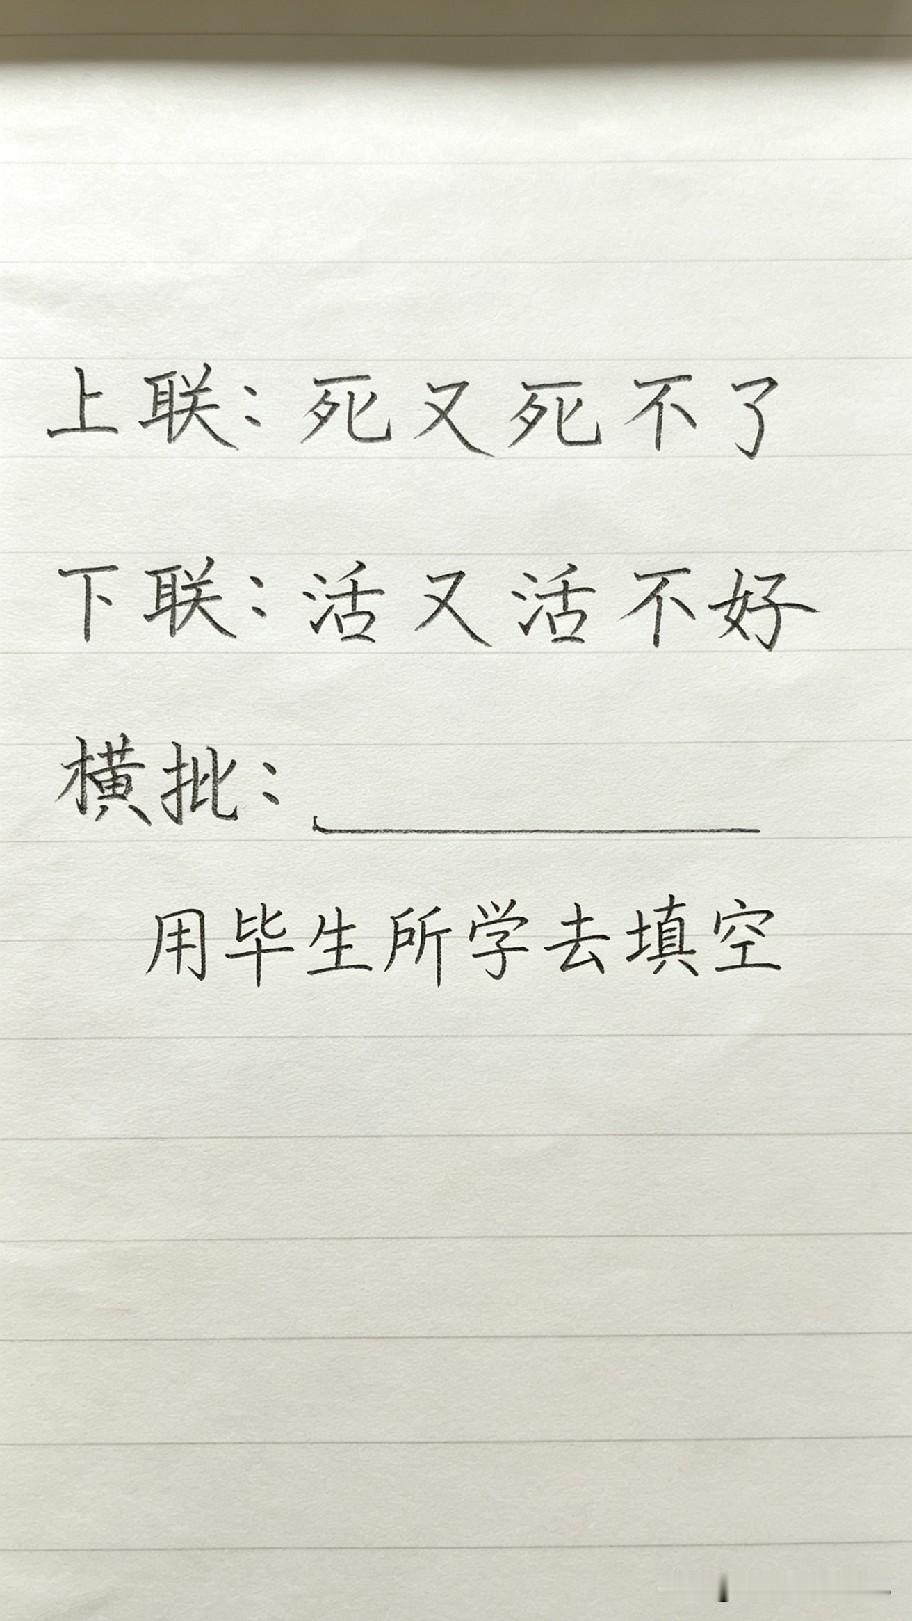 上联：死又死不了
下联：活又活不好
横批：
用毕生所学去填空